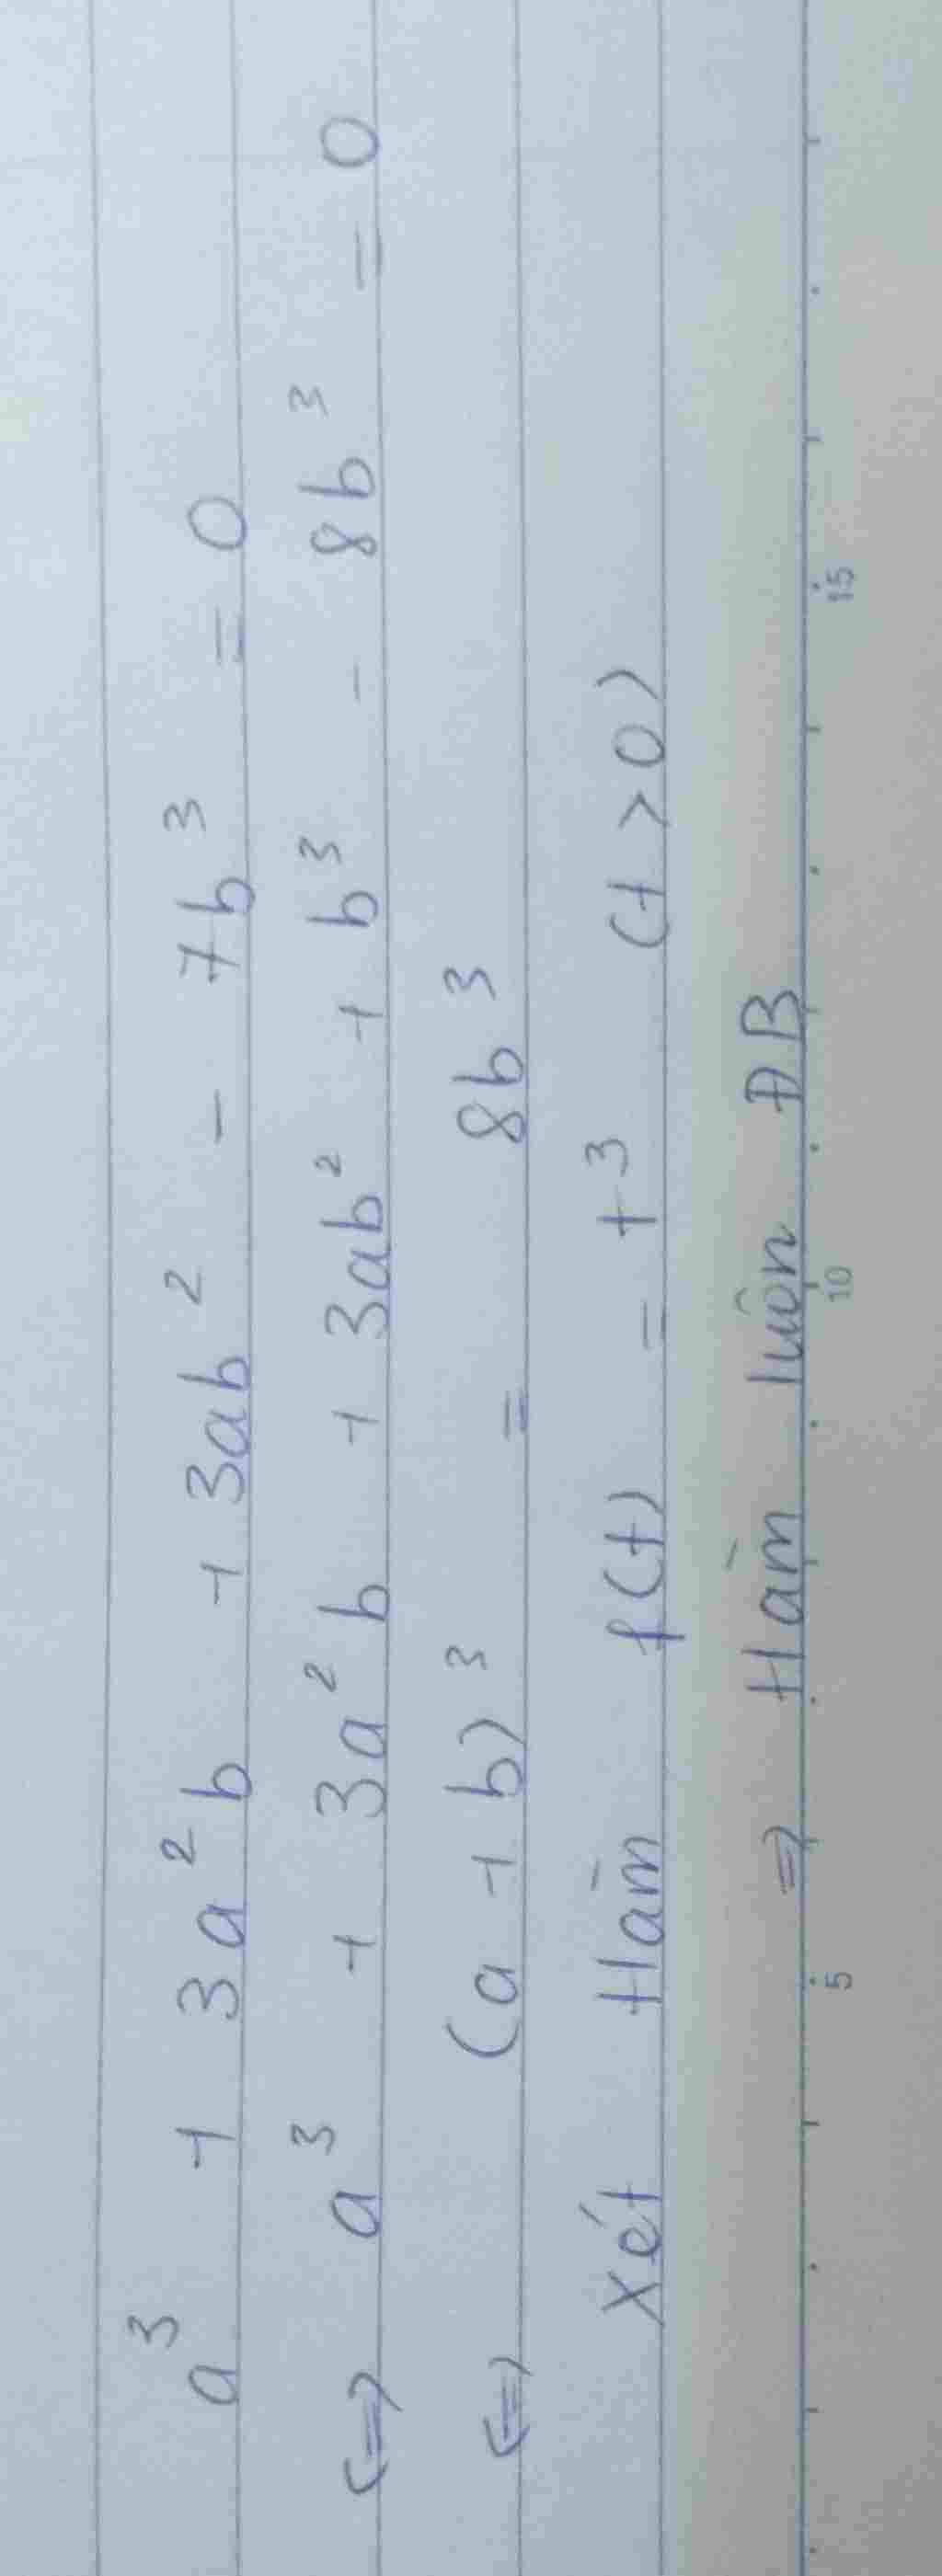 a³ + 3a²b + 3ab² - 7b³ = 0
<=> a³ + 3a²b + 3ab² + b³ - 8b³ = 0
<=> (a + b)³ = 8b³
Xét Hàm f(t) = t³ (t > 0)
=> Hàm luôn ĐB
5 10 15